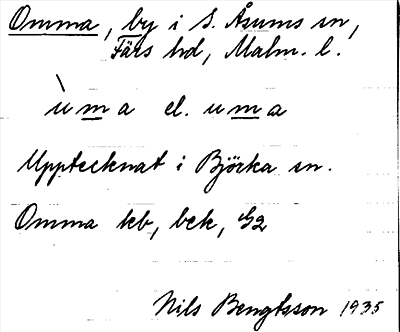 Omma, by i S. Åsums sn,
Färs hd, Malm. l.
ùma el. uma
Upptecknat i Björka sn.
Omma kb, bek, G2
Nils Bengtsson 1935